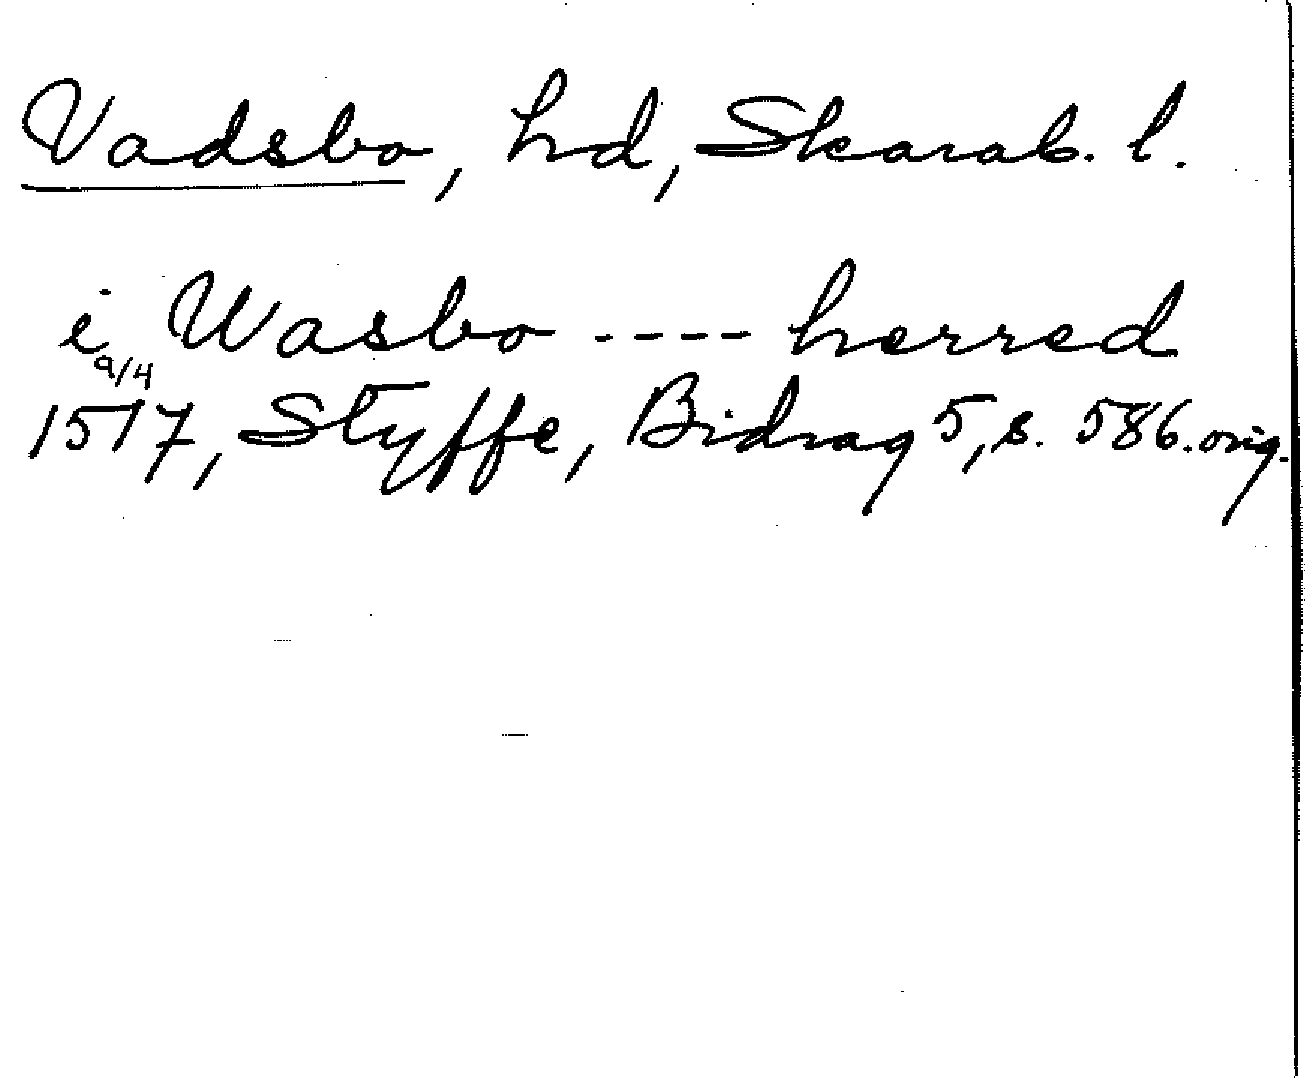 Vadsbo, hd, Skarab. l.
i Wasbo ---- herred
9/4
1517, Styffe, Bidrag 5, s. 586. orig.